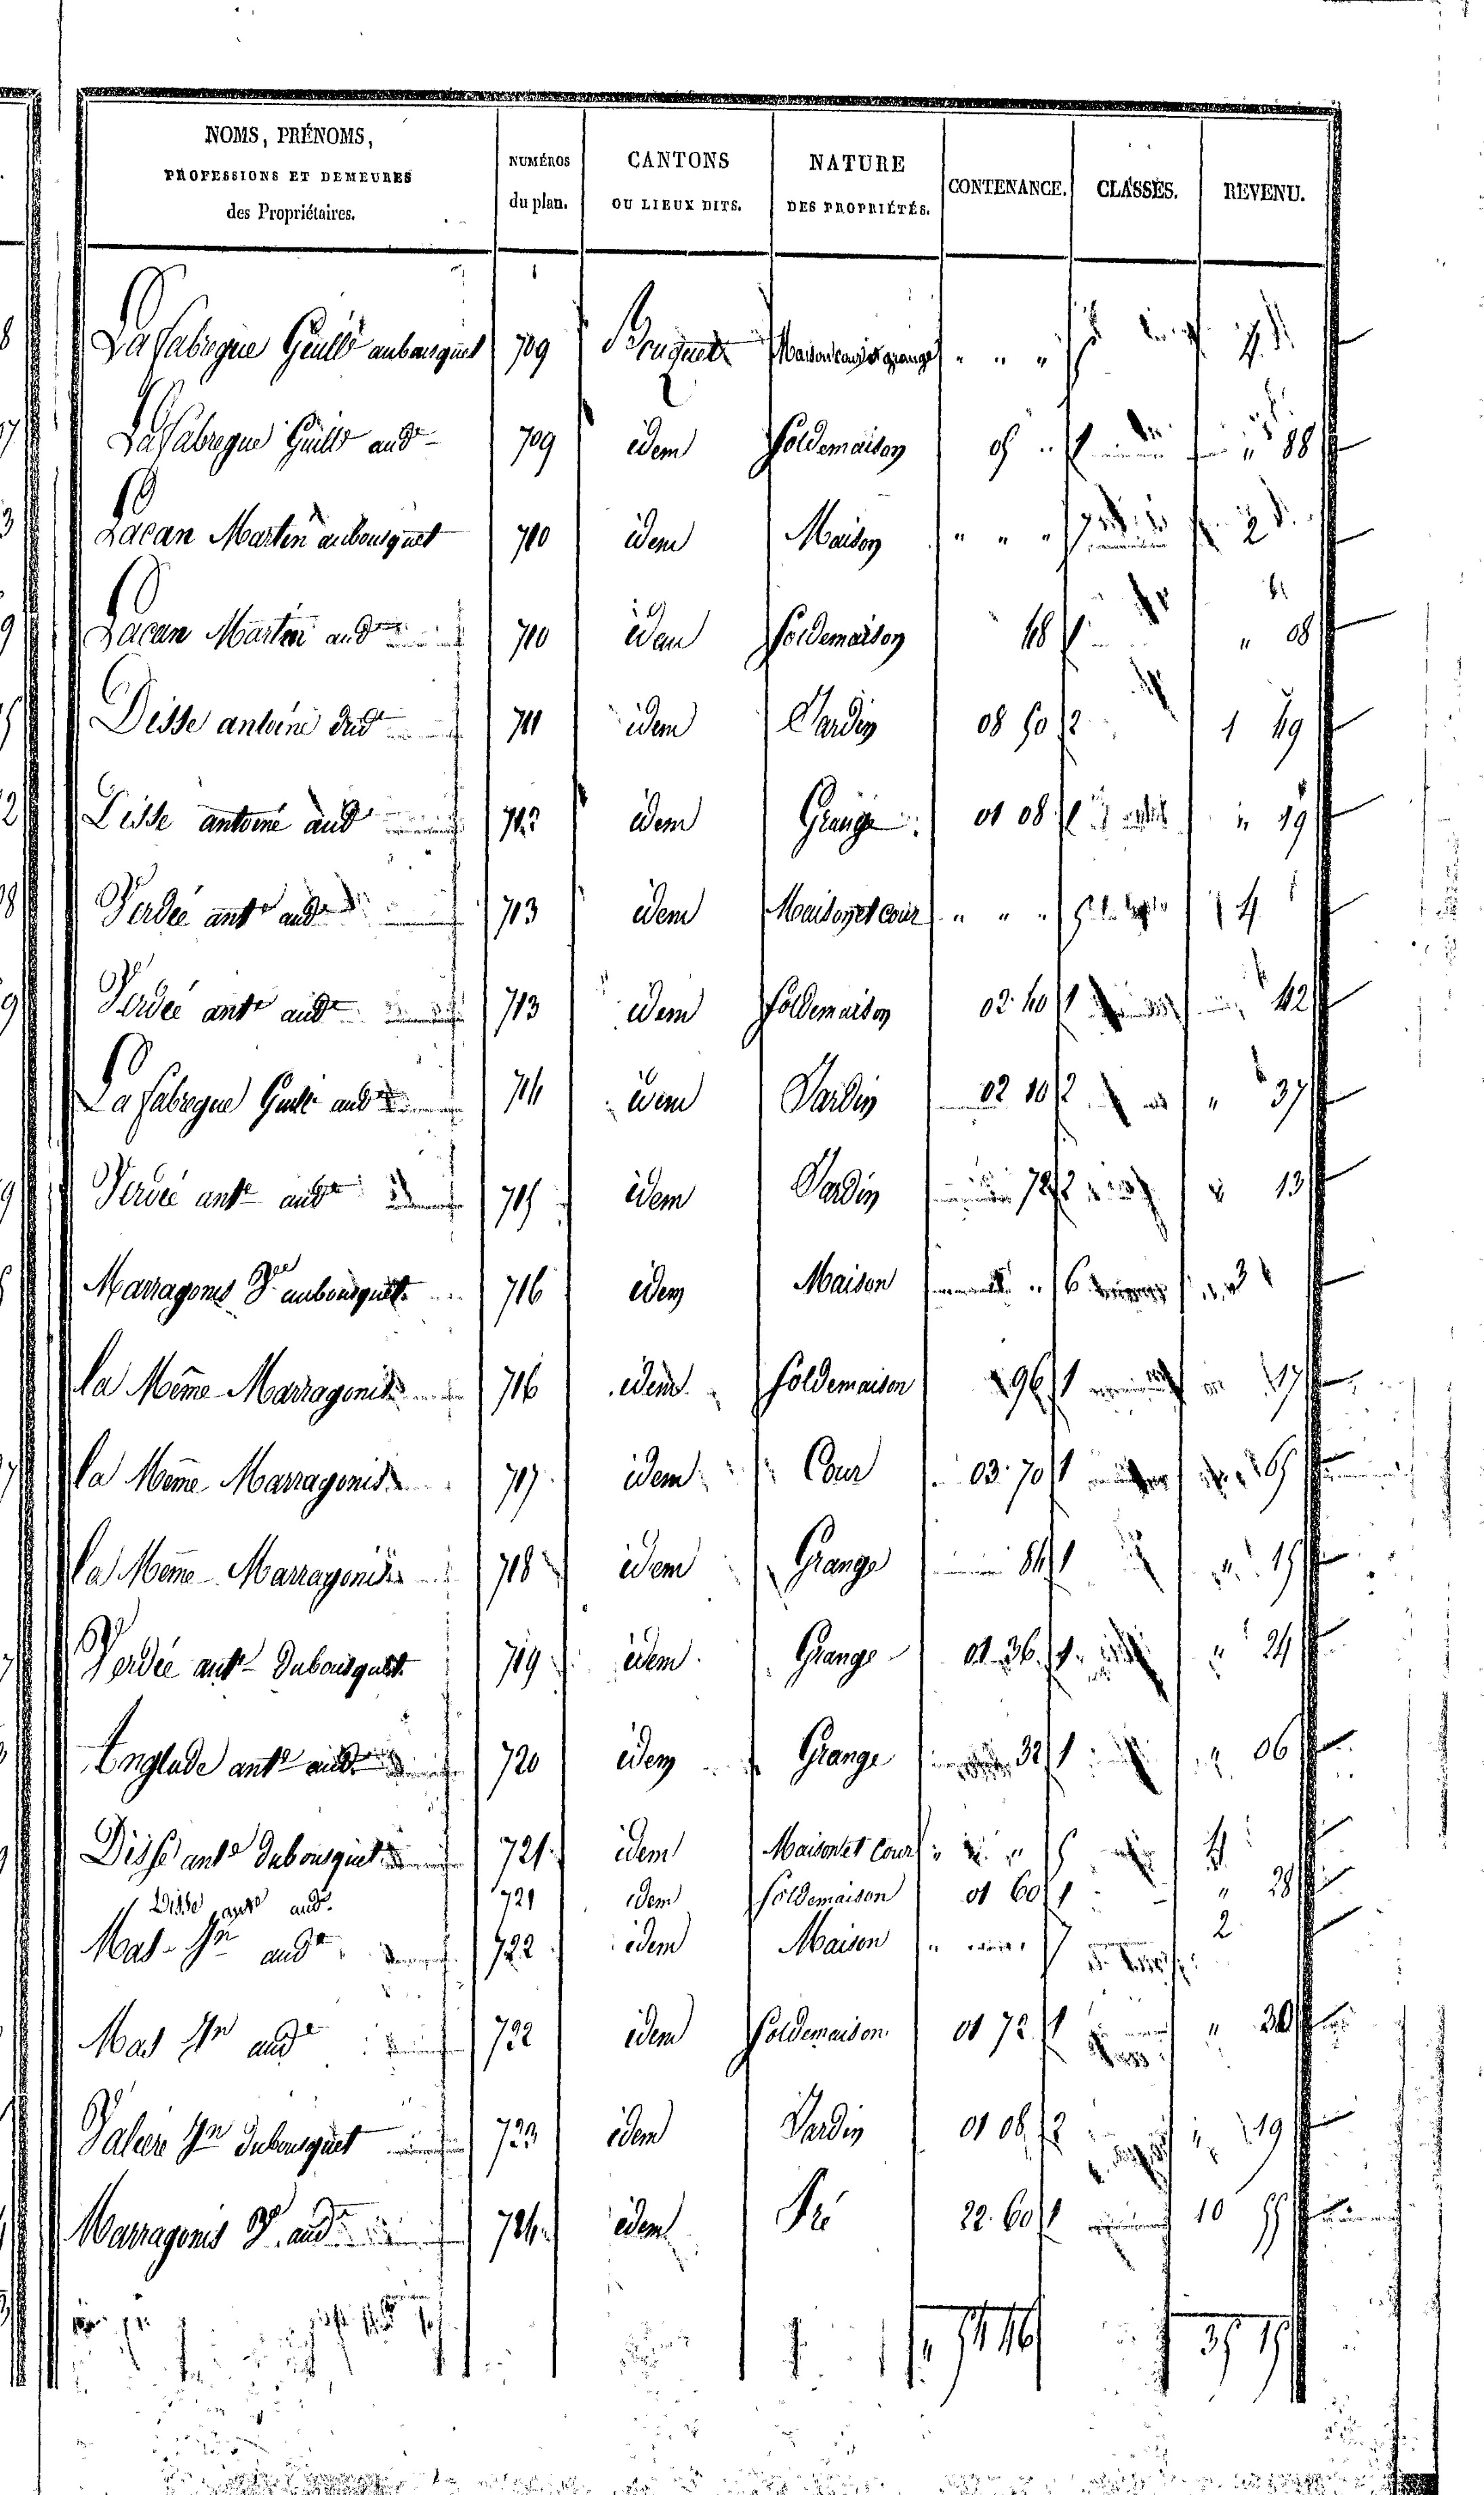 NOMS, PRÉNOMS,
PROFESSIONS ET DEMEURES
des Propriétaires.
NUMÉROS
du plan.
CANTONS
OU LIEUX DITS.
NATURE
DES PROPRIÉTÉS.
CONTENANCE.
CLASSES.
REVENU.
La fabregue Guille aubousquet 709 Maison cour et grange " " " 5 4
La fabregue Guille aud 709 idem sol de maison 05 " 1 " 88
Lacan Martin aubousquet 710 idem Maison " " " 7 2
Lacan Martin aud 710 idem sol de maison 48 1 " 08
Disse antoine dud 711 idem Jardin 08 50 2 1 49
Disse antoine aud 712 idem Grange 01 08 1 " 19
Verdié ante aud 713 idem Maison et cour " " " 5 4
Verdié ante aud 713 idem sol de maison 02 40 1 42
La fabregue Guille aud 714 idem Jardin 02 10 2 " 37
Verdié ante aud 715 idem Jardin 72 2 " 13
Marragonis aubousquet 716 idem Maison " 6 3
la Même Marragonis 716 idem sol de maison 96 1 17
la Même Marragonis 717 idem Cour 03 70 1 65
la Même Marragonis 718 idem Grange 84 1 " 15
Verdié ante dubousquet 719 idem Grange 01 36 1 " 24
Englade ante aud 720 idem Grange 32 1 " 06
Disse ante dubousquet 721 idem Maison et Cour " " " 5 4
Disse ante aud 721 idem sol de maison 01 60 1 " 28
Mas Jn aud 722 idem Maison " 7 2
Mas Jn aud 722 idem sol de maison 01 72 1 " 30
Jn dubousquet 723 idem Jardin 01 08 2 " 19
Marragonis aud 724 idem Pré 22 60 1 10 55
" 54 46 35 15